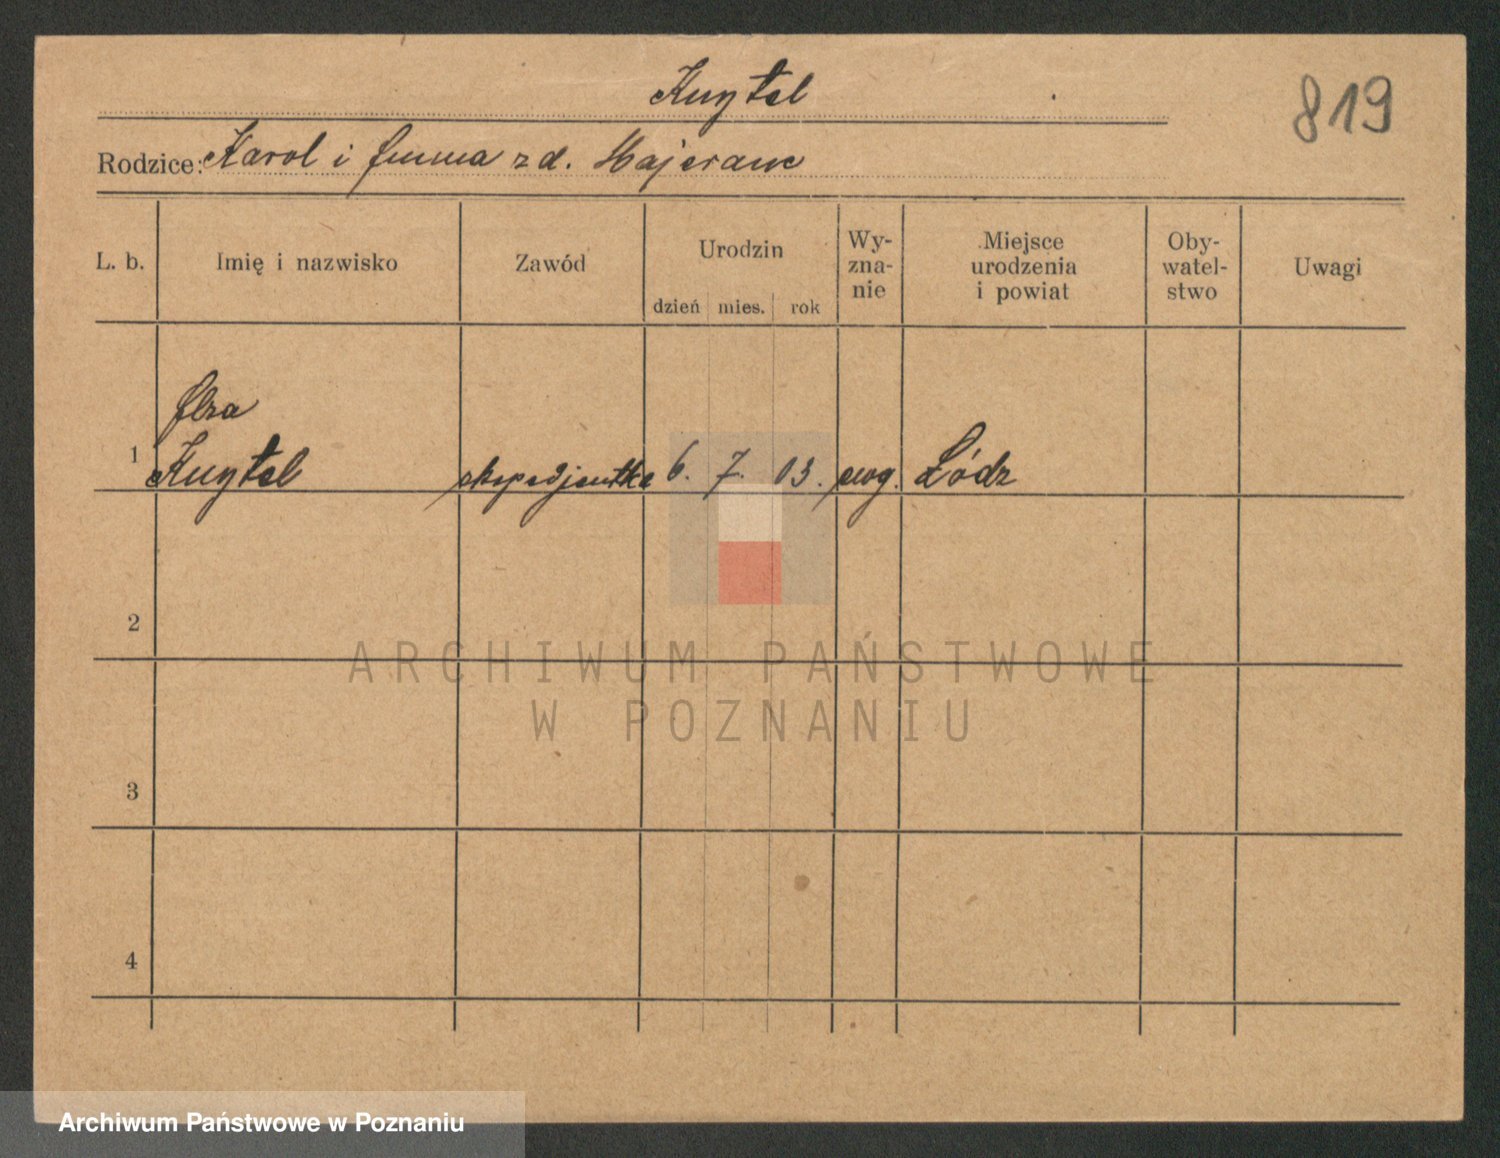 Knytel
819
Rodzice: Karol i Emma z d. Majeranc
L. b. Imię i nazwisko Zawód Urodzin dzień mies. rok Wy-zna-nie Miejsce urodzenia i powiat Oby-watel-stwo Uwagi
Elza
1 Knytel ekspedjentka 6. 7. 03. ewg. Łódz
2
ARCHIWUM PAŃSTWOWE
W POZNANIU
3
4
Archiwum Państwowe w Poznaniu